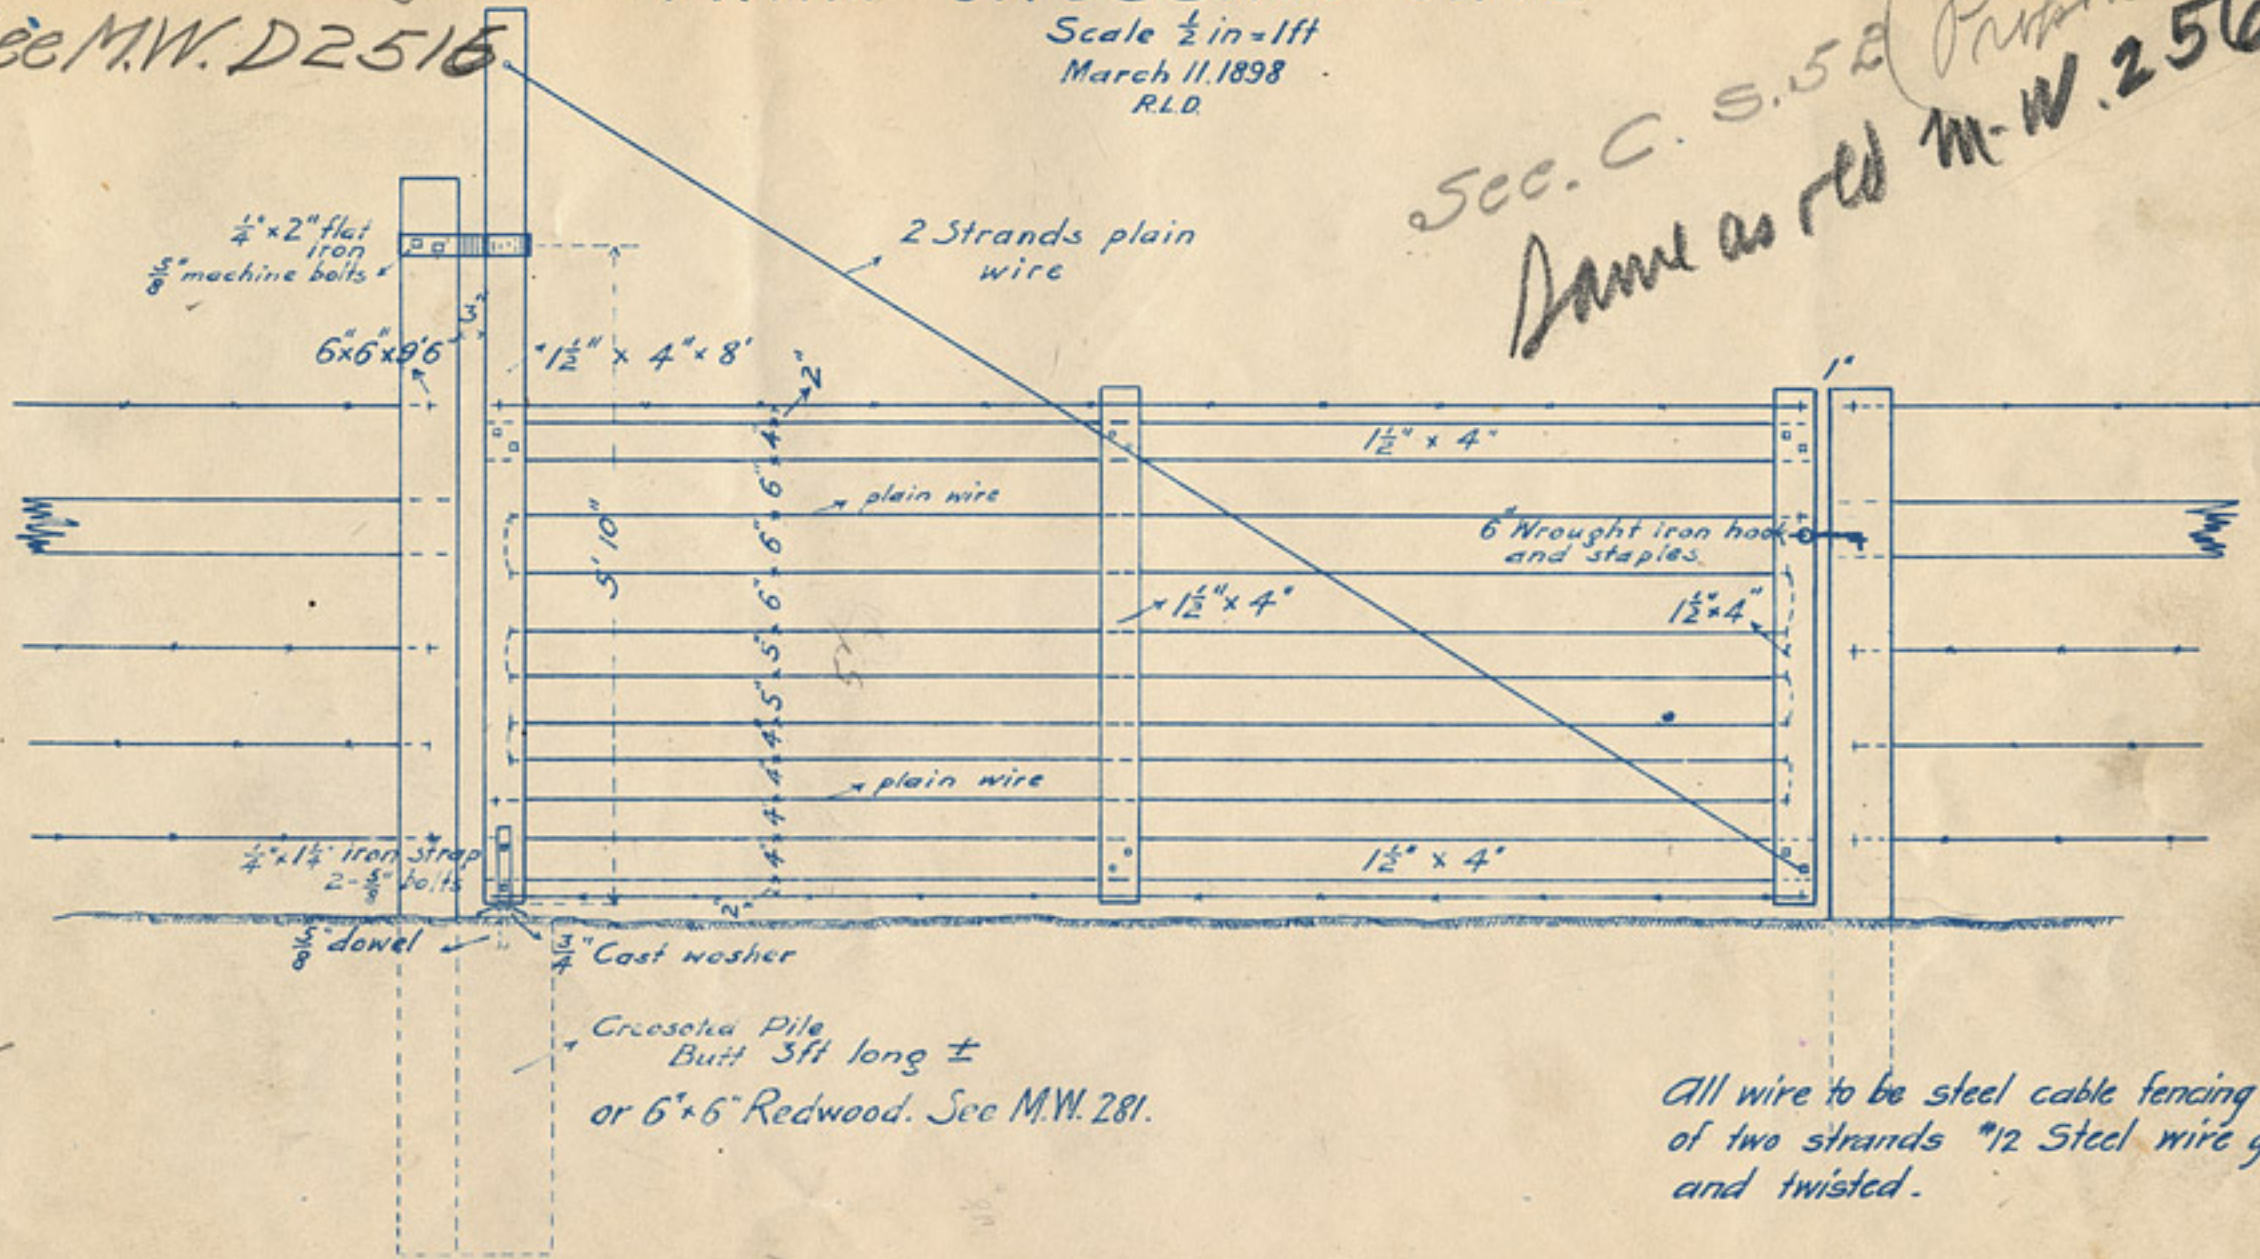 See M.W. D2515
Scale ½ in = 1ft
March 11.1898
R.L.D.
See. C. S. 52
Same as old M.W. 256
¼" x 2" flat
iron
⅝" machine bolts
2 Strands plain
wire
6"x6"x9'6"
1½" x 4" x 8'
2"
1"
4"
6"
6"
6"
5"
5"
4"
4"
4"
4"
2"
5' 10"
1½" x 4"
plain wire
6" Wrought iron hook
and staples
1½" x 4"
1½" x 4"
plain wire
¼" x 1¼" iron strap
2-⅝" bolts
1½" x 4"
⅝" dowel
¾" Cast washer
Creosoted Pile
Butt 3ft long ±
or 6"x6" Redwood. See M.W. 281.
All wire to be steel cable fencing
of two strands #12 Steel wire
and twisted.